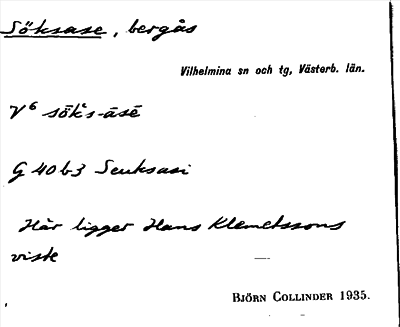 Söksase, bergås
Vilhelmina sn och tg, Västerb. län.
V⁶ sȫk's-āsē
G 40 b3 Seuksasi
Här ligger Hans Klemetssons
viste
BJÖRN COLLINDER 1935.